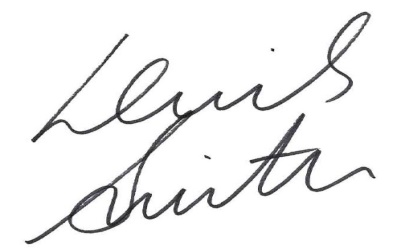 Denis
Smith